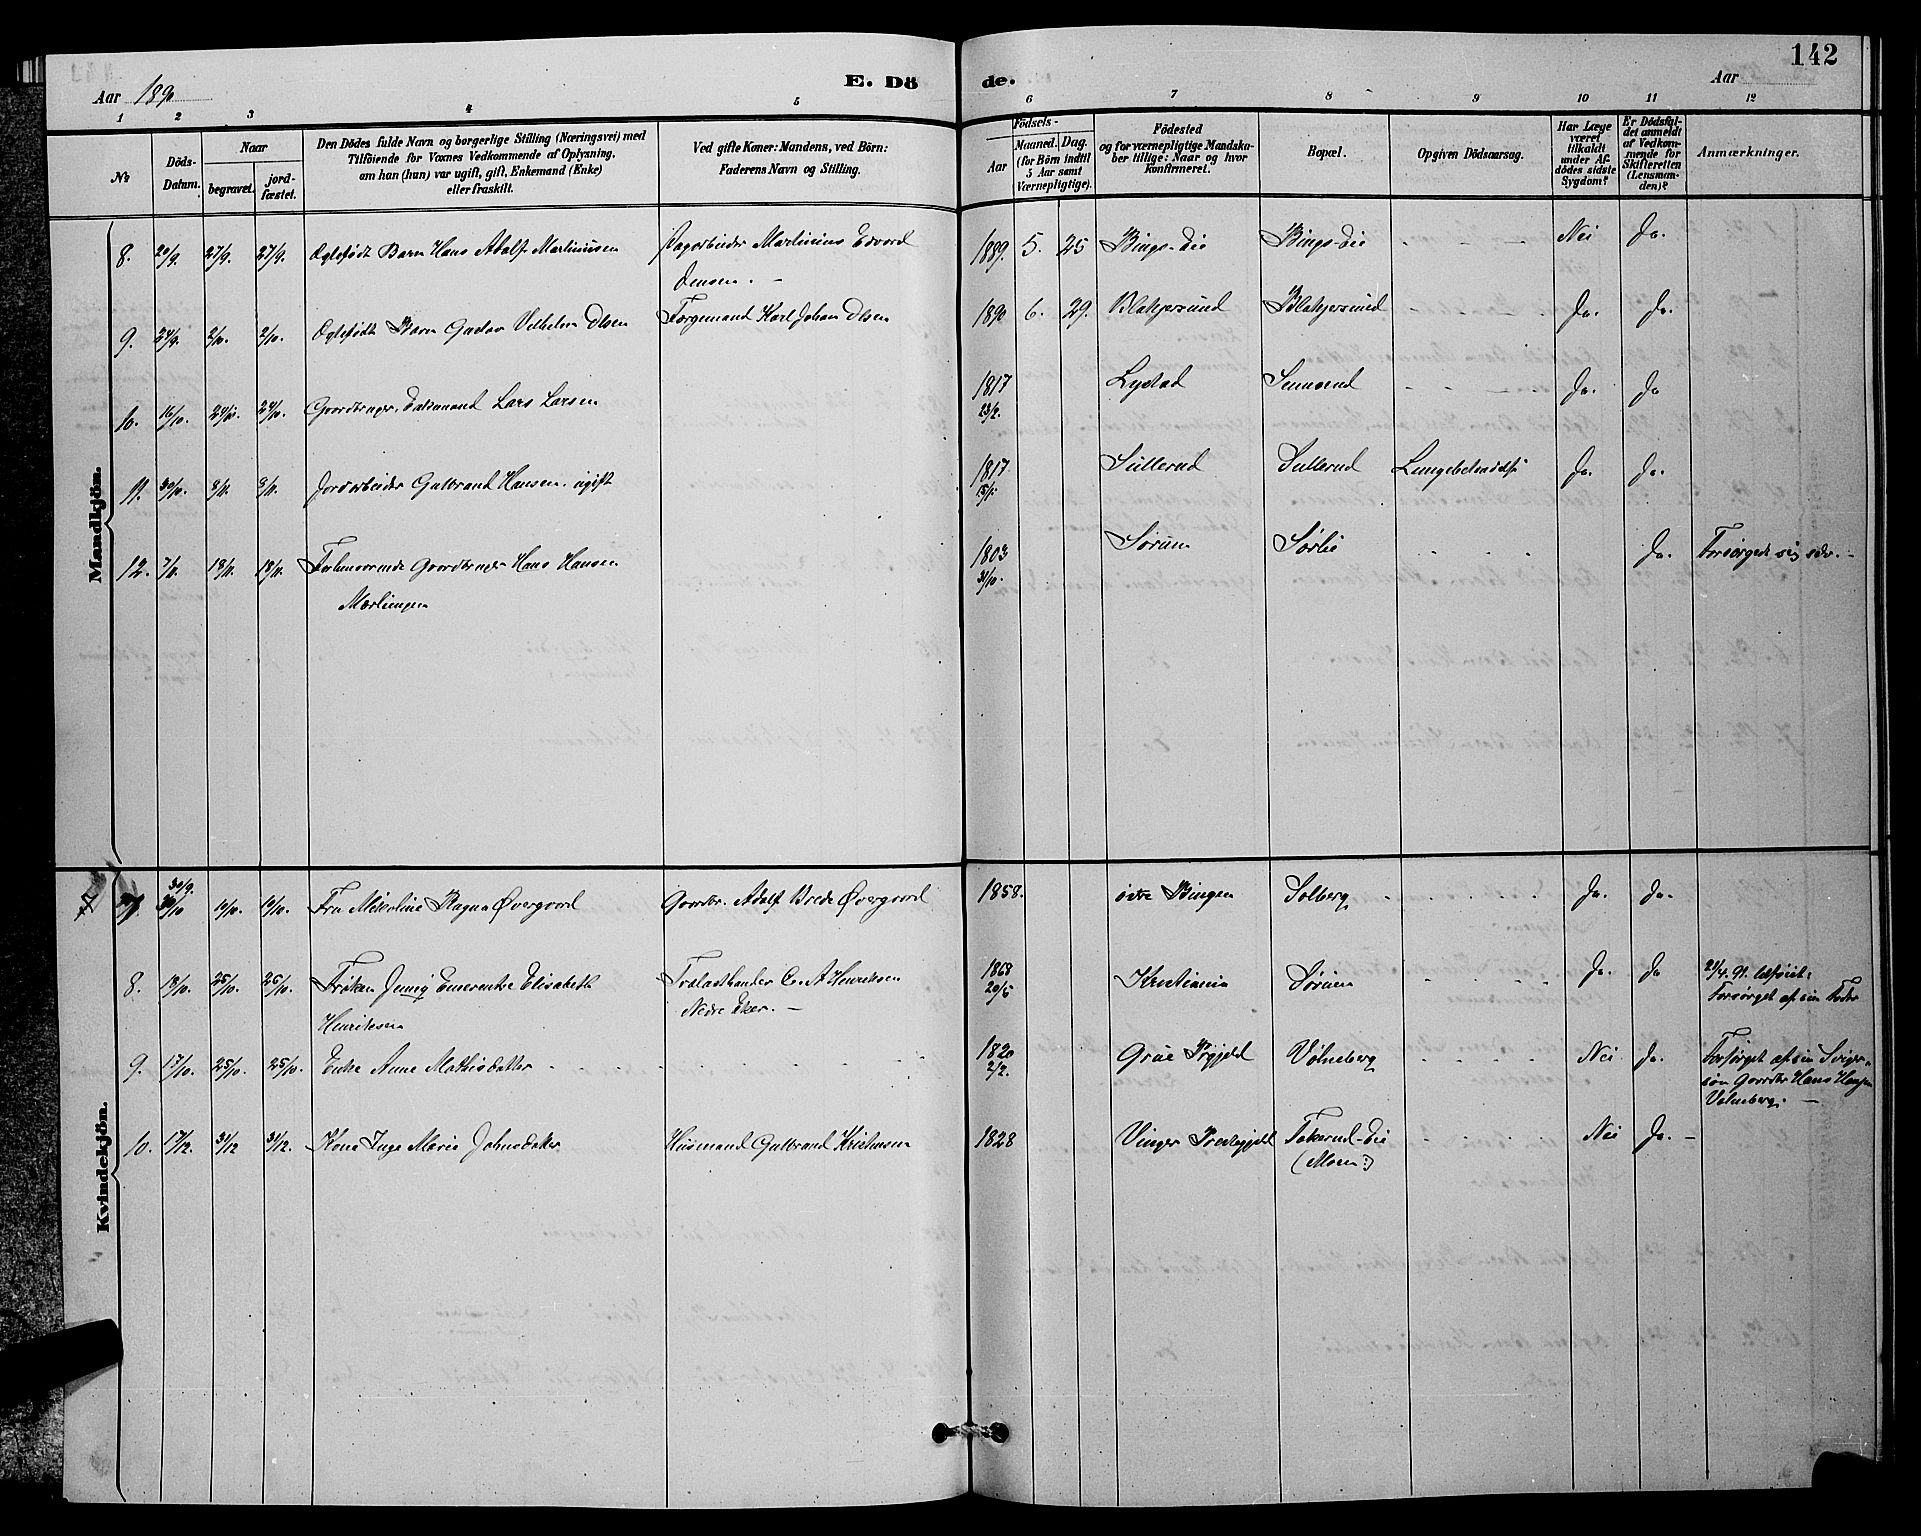 142
Aar 1890 E. Dö de. Aar
1 2 3 4 5 6 7 8 9 10 11 12
№
Döds-Datum.
Naar
begravet.
jord-fæstet.
Den Dödes fulde Navn og borgerlige Stilling (Næringsvei) med
Tilföiende for Voxnes Vedkommende af Oplysning,
om han (hun) var ugift, gift, Enkemand (Enke)
eller fraskilt.
Ved gifte Koner: Mandens, ved Börn:
Faderens Navn og Stilling.
Födsels-
Aar
Maaned. Dag.
(for Börn indtil
5 Aar samt
Værnepligtige).
Födested
og for værnepligtige Mandska-
ber tillige: Naar og hvor
konfirmeret.
Bopæl.
Opgiven Dödsaarsag.
Har Læge
været
tilkaldt
under Af-
dödes sidste
Sygdom?
Er Dödsfal-
det anmeldt
af Vedkom-
mende for
Skifteretten
(Lensman-
den)?
Anmærkninger.
Mandkjön.
8. 20/9. 27/9. 27/9. Ægtefødt Barn Hans Adolf Martiniusen Dagarbeider Martinius Edvard 1889. 5. 25 Bings-Eie Bings-Eie Nei Ja.
Jensen.
9. 24/9. 2/10. 2/10. Ægtefødt Barn Gustav Vilhelm Olsen Færgemand Karl Johan Olsen 1890 6. 29. Blakjersund Blakjersund Ja. Ja.
10. 16/10. 24/10. 24/10. Gaardbruger, Dalsmand Lars Larsen 1817 Lystad Ja. Ja
23/2.
11. 30/10. 8/11. 8/11. Jordarbeider Gulbrand Hansen. ugift 1817 Sullerud Sullerud Lungebetændelse Ja. Ja.
12. 7/11. 18/11. 18/11. Forhenværende Gaardbruger Hans Hansen 1803 Sørum Sørlie Ja. Forsørgede sig selv.
Mærliengen 31/10.
Kvindekjön.
7 30/9. 10/10. 10/10. Fru Nikoline Ragna Øvergaard Gaardbr. Adolf Brede Øvergaard 1858. østre Bingen Solberg Ja. Ja.
8. 18/10. 25/10. 25/10. Frøken Jenny Emerentse Elisabeth Trælasthandler C. A. Henriksen 1868 Kristiania Sørum Ja. Ja
Henriksen Nedre Eker. 20/5 Forsørget af sin Fader
9. 17/10. 25/10. 25/10. Enke Anne Mathisdatter 1820 Grue Prgjeld Vølneberg Nei Ja. Forsørget af sin Sviger-
2/2. søn Gaardbr Hans Hansen
Vølneberg.
10. 17/12. 31/12 31/12. Kone Inge Marie Johnsdatter Husmand Gulbrand Kristiansen 1828 Vinger Prestegjeld Fakerud-Eie Nei Ja.
(Moren:)